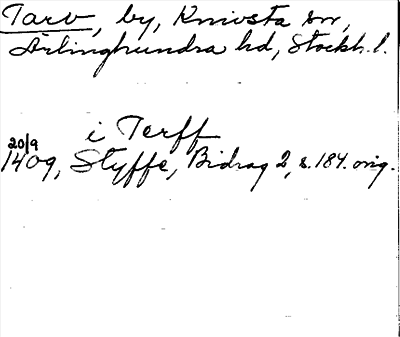 Tarv, by, Knivsta sn,
Ärlinghundra hd, Stockh. l.
i Terff
20/9
1409, Styffe, Bidrag 2, s. 184. orig.